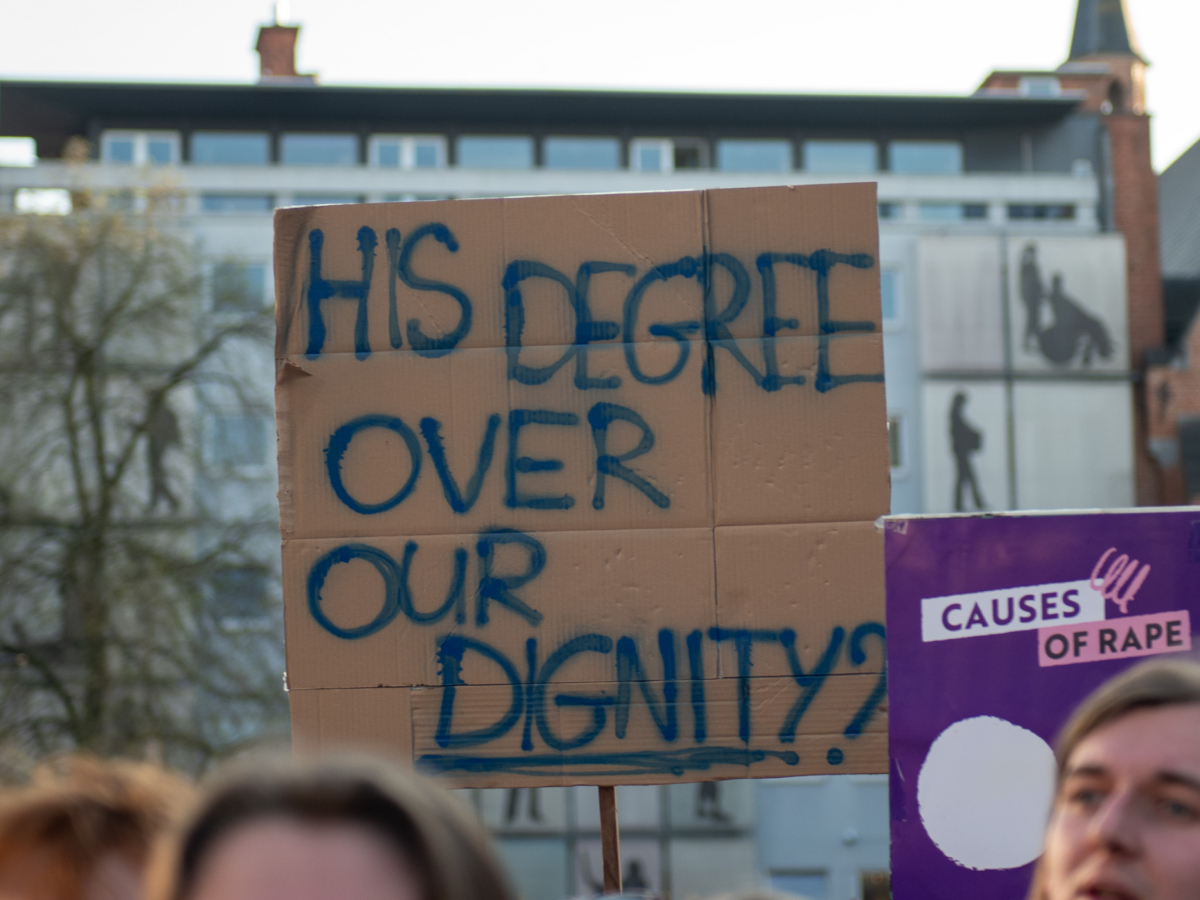 HIS DEGREE
OVER
OUR
DIGNITY?
CAUSES
OF RAPE